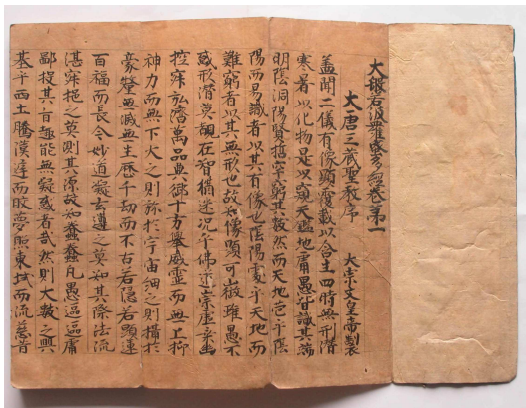 大般若波羅蜜多經卷第一
大唐三藏聖教序 大宗文皇帝製
蓋聞二儀有像顯覆載以含生四時無刑潛
寒暑以化物是以窺天鑑地庸愚皆識其端
明陰洞陽賢哲罕窮其數然而天地苞乎陰
陽而易識者以其有像也陰陽處乎天地而
難窮者以其無形也故知像顯可徵雖愚不
惑形潛莫覩在智猶迷況乎佛道崇虛乘幽
控寂弘濟萬品典御十方舉威靈而無上抑
神力而無下大之則彌於宇宙細之則攝於
豪釐無滅無生歷千劫而不古若隱若顯運
百福而長今妙道凝玄遵之莫知其際法流
湛寂挹之莫則其源故知蠢蠢凡愚區區庸
鄙投其旨趣能無疑惑者哉然則大教之興
基乎西土騰漢庭而皎夢照東域而流慈昔